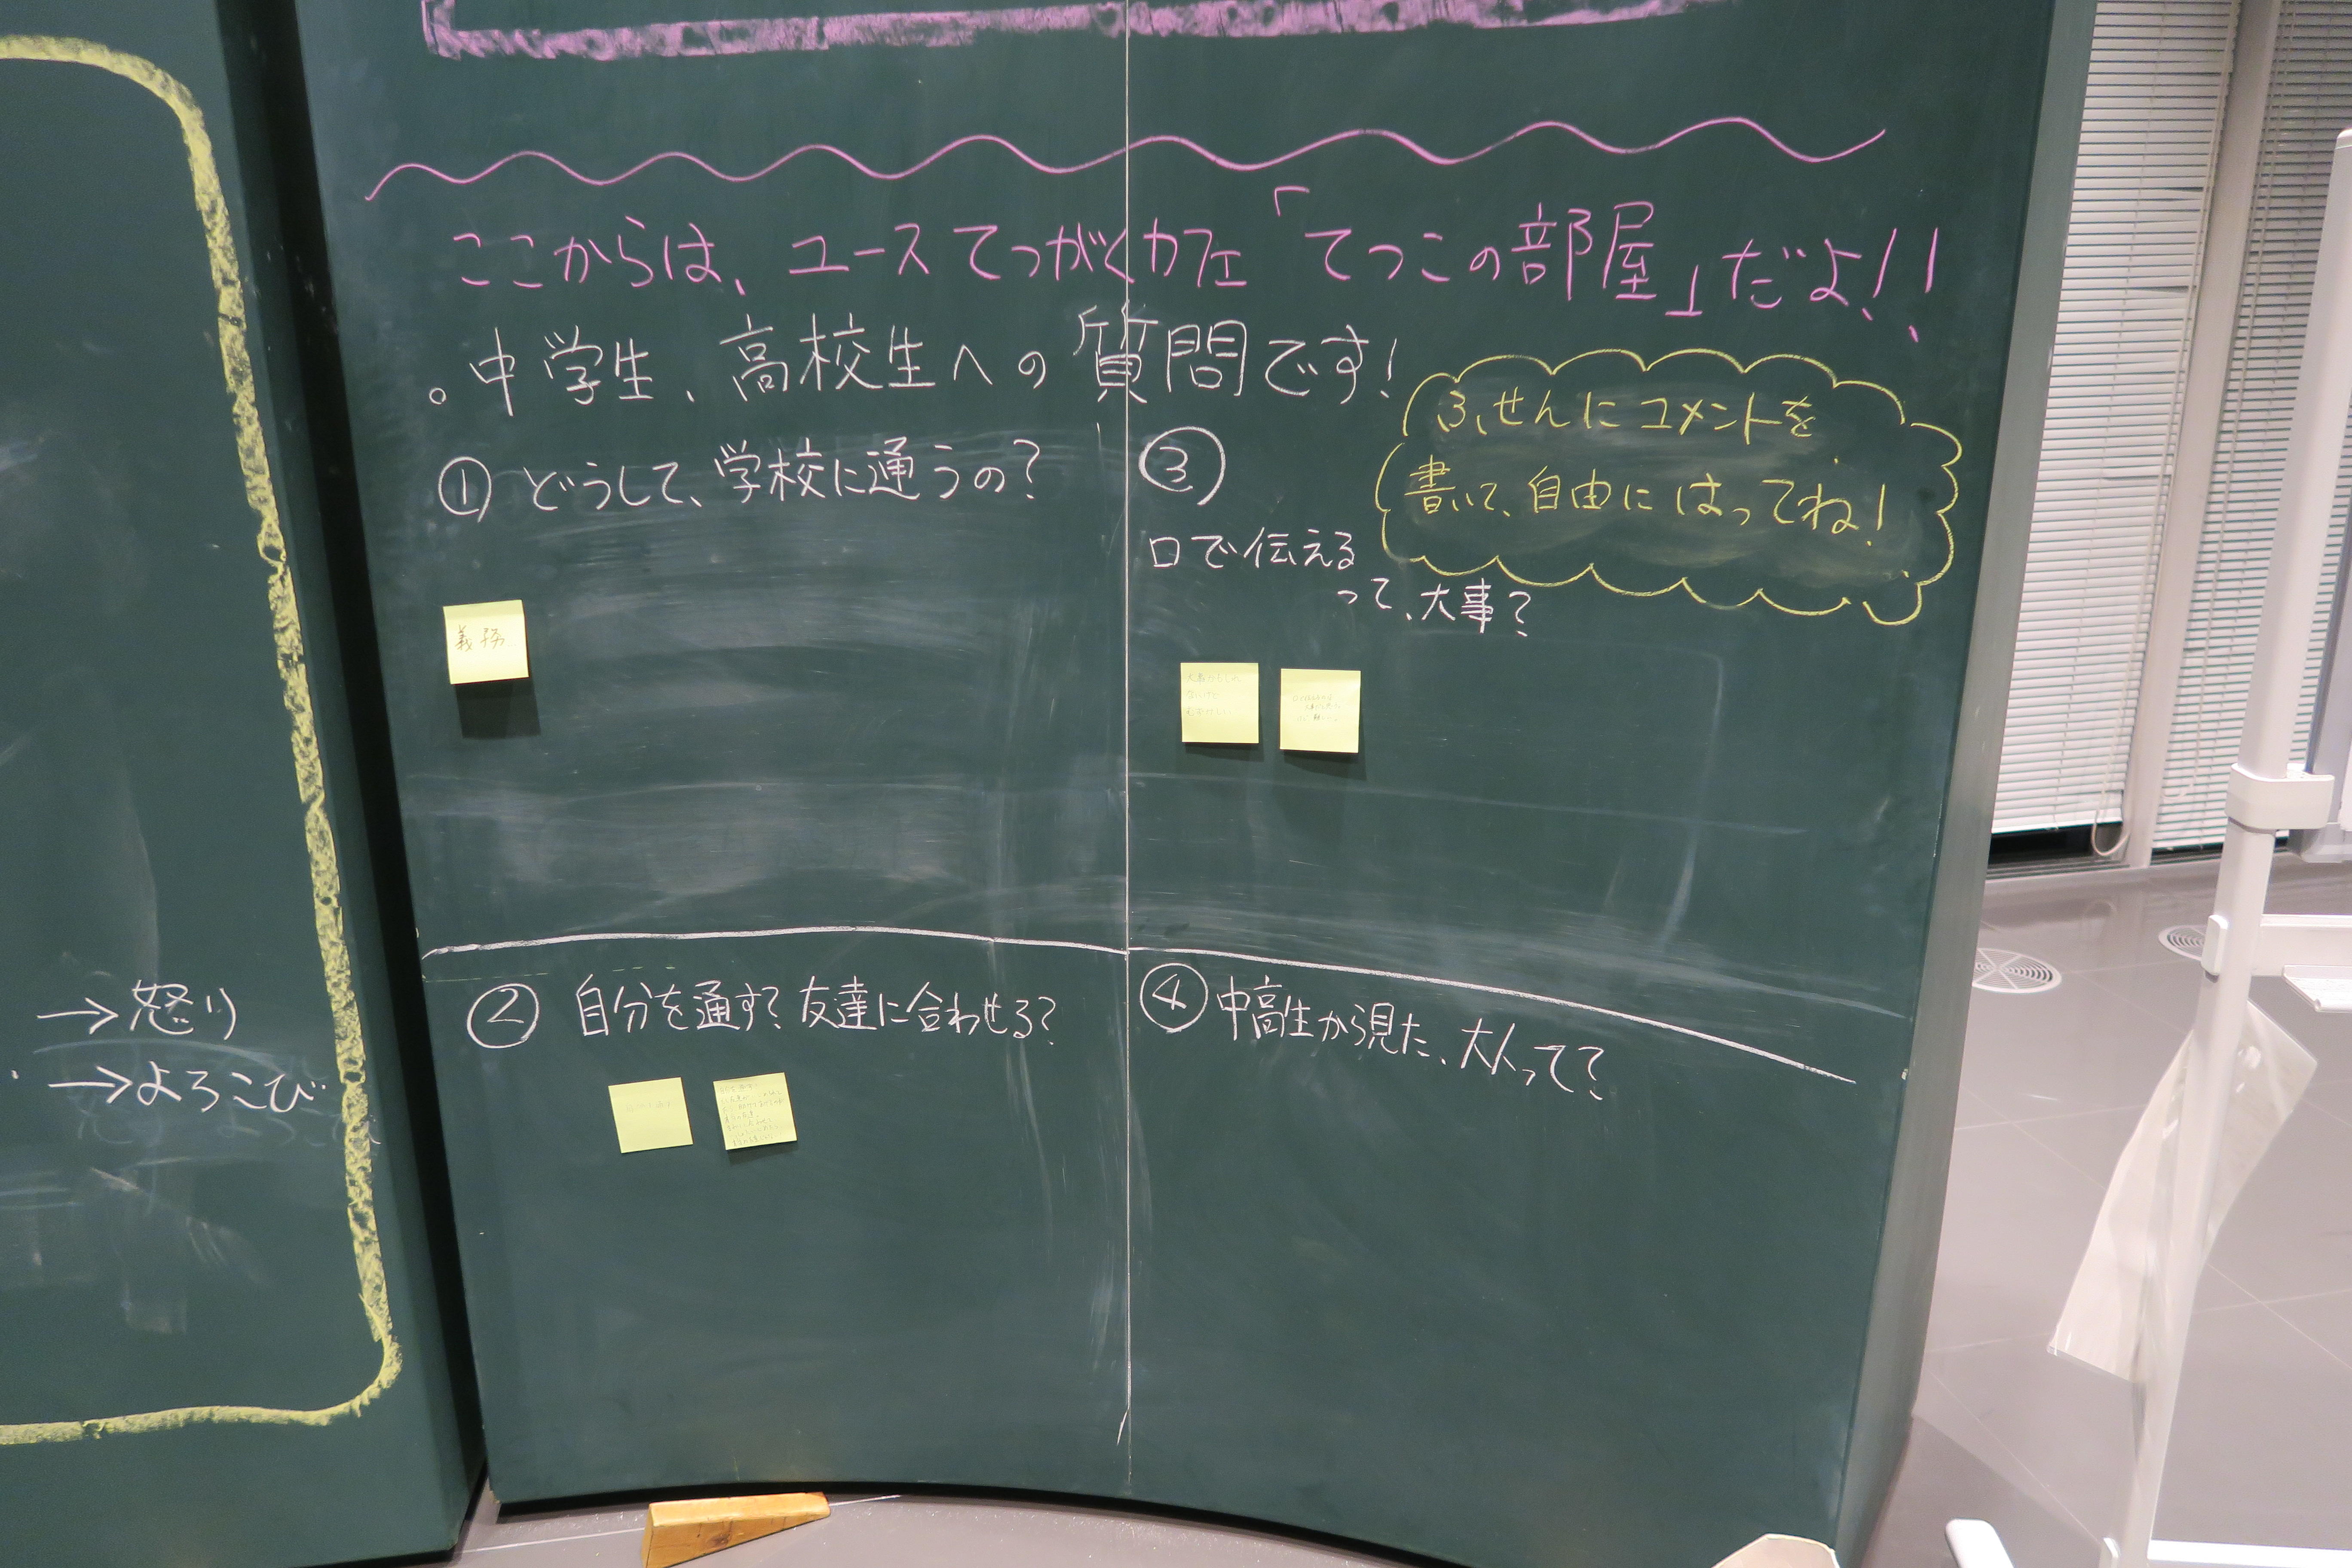 ここからは、ユースてつがくカフェ「てつこの部屋」だよ!!
。中学生、高校生への質問です!
ふせんにコメントを
書いて、自由にはってね!
① どうして、学校に通うの?
義務
② 自分を通す?友達に合わせる?
③
口で伝える
って、大事?
④ 中高生から見た、大人って?
→怒り
→よろこび